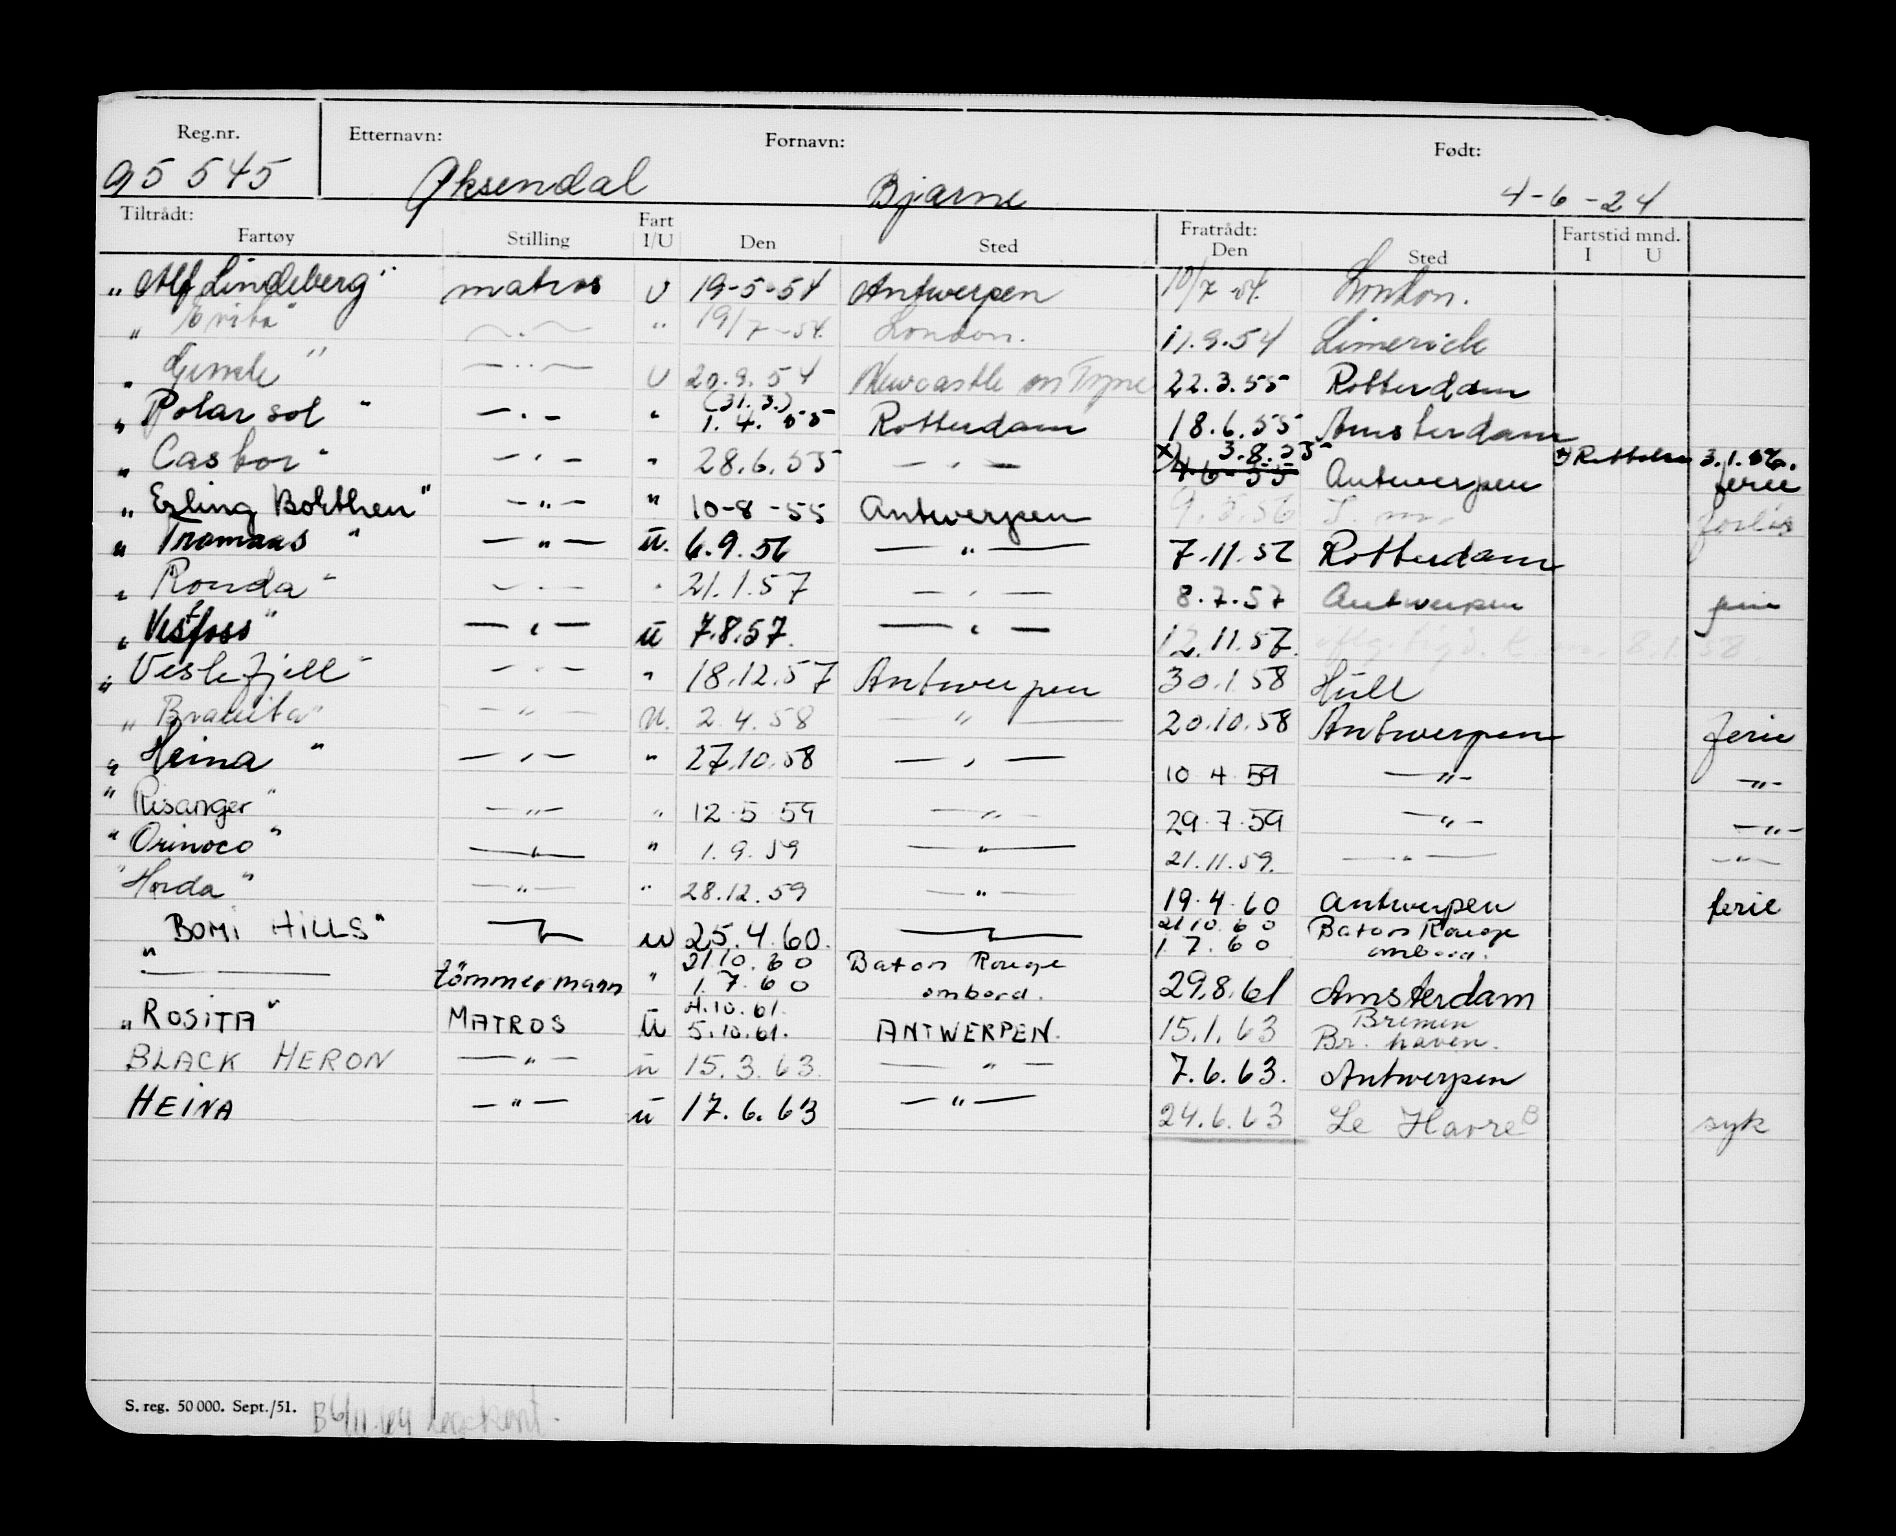 Reg.nr. Etternavn: Fornavn: Født:
95 545 Øksendal Bjarne 4-6-24
Tiltrådt: Fratrådt:
Fartøy Stilling Fart I/U Den Sted Den Sted Fartstid mnd. I U
"Alf Lindeberg" matros U 19-5-54 Antwerpen 10/7-54. London.
"Evita" — " — " 19/7-54. London. 17.9.54 Limerick
"Gimle" — " — U 20.9.54 Newcastle on Tyne 22.3.55 Rotterdam
(31.3.)
"Polarsol" — " — " 1.4.55 Rotterdam 18.6.55 Amsterdam
"Castor" — " — " 28.6.55 — " — x) 3.8.55 Antwerpen 3.1.56. ferie
"Erling Borthen" — " — " 10-8-55 Antwerpen 9.5.56 forlis
"Tromaas" — " — ü. 6.9.56 — " — 7.11.56 Rotterdam
"Ronda" — " — " 21.1.57 — " — 8.7.57 Antwerpen ferie
"Vestfoss" — " — ü 7.8.57. — " — 12.11.57. 8.1.58.
"Veslefjell" — " — " 18.12.57 Antwerpen 30.1.58 Hull
"Bravita" — " — U. 2.4.58 — " — 20.10.58 Antwerpen ferie
"Heina" — " — " 27.10.58 — " — 10.4.59 — " — — " —
"Risanger" — " — " 12.5.59 — " — 29.7.59 — " — — " —
"Orinoco" — " — " 1.9.59 — " — 21.11.59. — " — — " —
"Horda" — " — " 28.12.59 — " — 19.4.60 Antwerpen ferie
"BOMI HILLS" — " — U 25.4.60. — " — 21.10.60 Baton Rouge
1.7.60 ombord.
— " — tömmermann " 21.10.60 Baton Rouge
1.7.60 ombord. 29.8.61 Amsterdam
4.10.61.
"ROSITA" MATROS Ü 5.10.61. ANTWERPEN. 15.1.63 Bremen
Br. haven.
BLACK HERON — " — ü 15.3.63. — " — 7.6.63. Antwerpen
HEINA — " — ü 17.6.63 — " — 24.6.63 Le Havre B syk
S. reg. 50 000. Sept./51.